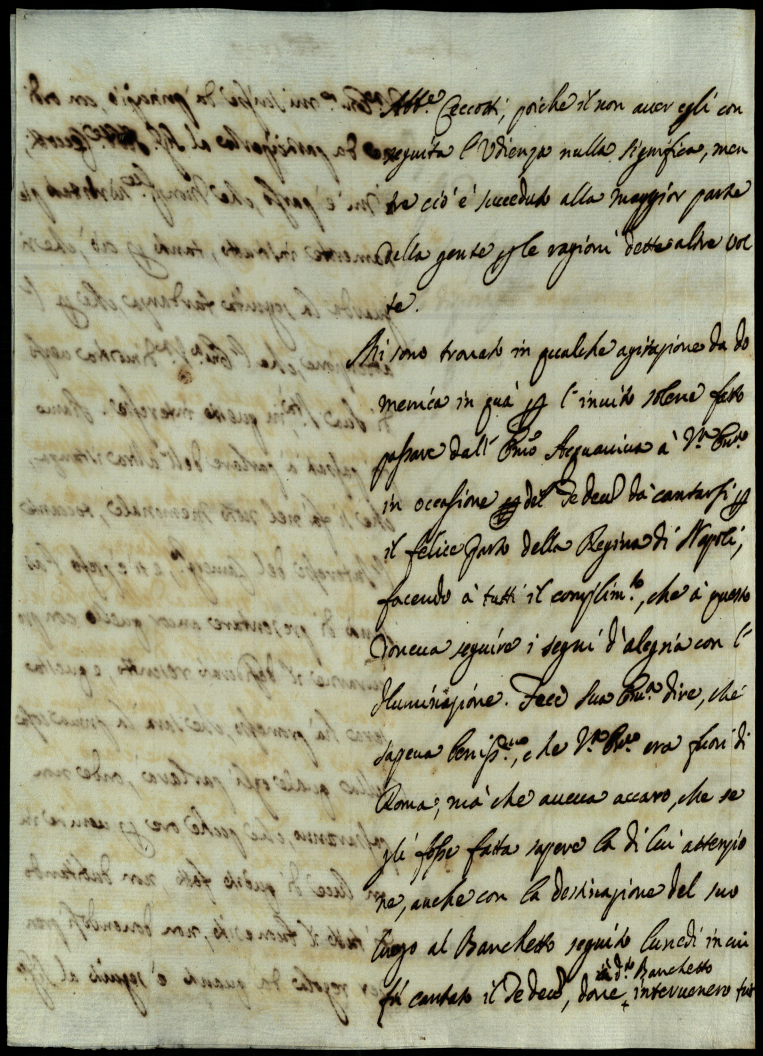 Abb.e Ceccotti, poiche il non auer egli con
seguita l'Udienza nulla significa, men
tre ciò è succeduto alla maggior parte
della gente p le ragioni dette altre vol
te.
Mi sono trouato in qualche agitazione da do
menica in quà p l'inuito solene fatto
passare dall' Emo Acquauiua à V.a Em.a
in occasione del Te deum da cantarsi p
il felice parto della Regina di Napoli,
facendo à tutti il complim.to, che à questo
doueua seguire i segni d'alegria con l'
Illuminazione. Fece sua Em.a dire, che
sapeua beniss.mo, che V.a Em.a era fuori di
Roma, mà che aueua accaro, che se
gli fosse fatta sapere la di lui attenzio
ne, anche con la destinazione del suo
luogo al Banchetto seguito lunedi in cui
fù cantato il Te deum, doue à d.o Banchetto interuenero tut